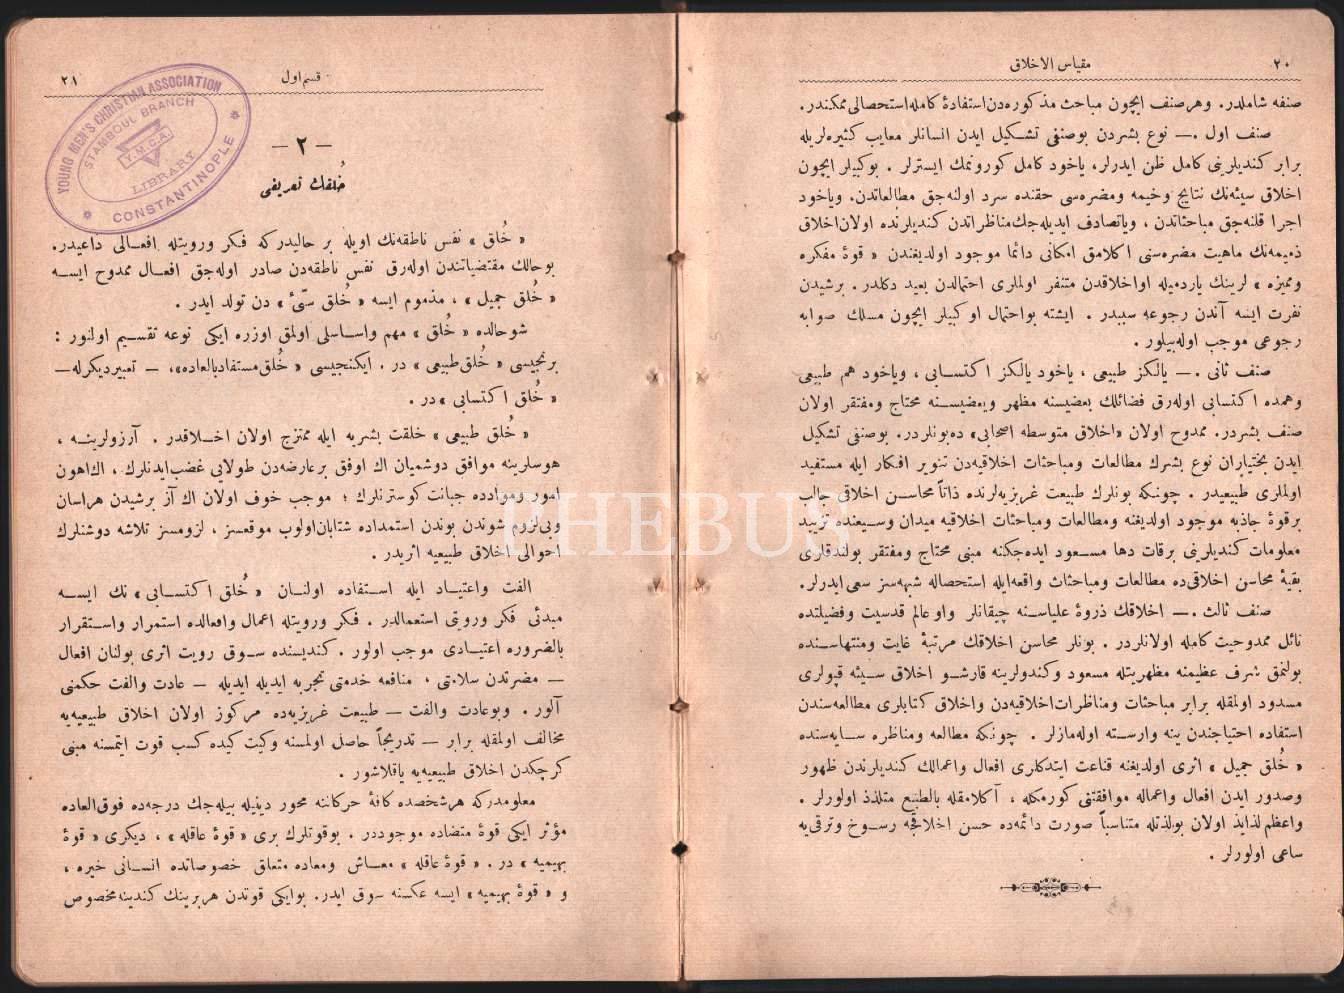 ٢٠
مقياس الاخلاق
صنفه شاملدر. وهرصنف ايچون مباحث مذكوره‌دن استفادهٔ كامله استحصالى ممكندر.
صنف اول .— نوع بشردن بوصنفى تشكيل ايدن انسانلر معايب كثيره‌لريله
برابر كنديلرينى كامل ظن ايدرلر، ياخود كامل كورونمك ايسترلر . بوكبيلر ايچون
اخلاق سيئه‌نك نتايج وخيمه ومضره‌سى حقنده سرد اولنه‌جق مطالعاتدن، وياخود
اجرا قلنه‌جق مباحثاتدن ، وياتصادف ايديله‌جك مناظراتدن كنديلرنده اولان اخلاق
ذميمه‌نك ماهيت مضره‌سنى اكلامق امكانى دائما موجود اولديغندن « قوهٔ مفكره
ومميزه » لرينك ياردميله اواخلاقدن متنفر اولملرى احتمالدن بعيد دكلدر . برشيدن
نفرت ايسه آندن رجوعه سببدر . ايشته بواحتمال او كبيلر ايچون مسلك صوابه
رجوعى موجب اوله‌بيلور .
صنف ثانى .— يالكز طبيعى ، ياخود يالكز اكتسابى ، وياخود هم طبيعى
وهمده اكتسابى اوله‌رق فضائلك بعضيسنه مظهر وبعضيسنه محتاج ومفتقر اولان
صنف بشردر. ممدوح اولان «اخلاق متوسطه اصحابى» ده‌بونلردر. بوصنفى تشكيل
ايدن بختياران نوع بشرك مطالعات ومباحثات اخلاقيه‌دن تنوير افكار ايله مستفيد
اولملرى طبيعيدر . چونكه بونلرك طبيعت غريزيه‌لرنده ذاتاً محاسن اخلاقى جالب
برقوهٔ جاذبه موجود اولديغنه ومطالعات ومباحثات اخلاقيه ميدان وسيعنده تزييد
معلومات كنديلرينى برقات دها مسعود ايده‌جكنه مبنى محتاج ومفتقر بولندقلرى
بقيهٔ محاسن اخلاقى‌ده مطالعات ومباحثات واقعه‌ايله استحصاله شبهه‌سز سعى‌ايدرلر.
صنف ثالث .— اخلاقك ذروهٔ علياسنه چيقانلر واوعالم قدسيت وفضيلتده
نائل ممدوحيت كامله اولانلردر . بونلر محاسن اخلاقك مرتبهٔ غايت ومنتهاسنده
بولنمق شرف عظيمنه مظهريتله مسعود وكندولرينه قارشو اخلاق سيئه قپولرى
مسدود اولمقله برابر مباحثات ومناظرات‌اخلاقيه‌دن واخلاق كتابلرى مطالعه‌سندن
استفاده احتياجندن ينه وارسته اوله‌مازلر . چونكه مطالعه ومناظره سايه‌سنده
« خُلق جميل » اثرى اولديغنه قناعت ايتدكلرى افعال واعمالك كنديلرندن ظهور
وصدور ايدن افعال واعماله موافقتنى كورمكله ، آكلامقله بالطبع متلذذ اولورلر .
واعظم لذايذ اولان بولذتله متناسباً صورت دائمه‌ده حسن اخلاقجه رسوخ وترقى‌يه
ساعى اولورلر .
قسم اول
٢١
YOUNG MEN'S CHRISTIAN ASSOCIATION
STAMBOUL BRANCH
Y.M.C.A.
LIBRARY
CONSTANTINOPLE
— ٢ —
خُلقك تعريفى
« خُلق » نفس ناطقه‌نك اويله بر حاليدركه فكر ورويتله افعالى داعيدر.
بوحالك مقتضياتندن اوله‌رق نفس ناطقه‌دن صادر اوله‌جق افعال ممدوح ايسه
« خُلق جميل » ، مذموم ايسه « خُلق سيّئ » دن تولد ايدر .
شوحالده « خُلق » مهم واساسلى اولمق اوزره ايكى نوعه تقسيم اولنور :
برنجيسى « خُلق طبيعى » در . ايكنجيسى « خُلق مستفاد بالعاده»، — تعبيرديكرله —
« خُلق اكتسابى » در .
« خُلق طبيعى » خلقت بشريه ايله ممتزج اولان اخلاقدر . آرزولرينه ،
هوسلرينه موافق دوشميان اك اوفق برعارضه‌دن طولايى غضب‌ايدنلرك ، اك‌اهون
امور وموادده جبانت كوسترنلرك ؛ موجب خوف اولان اك آز برشيدن هراسان
وبى‌لزوم شوندن بوندن استمداده شتابان‌اولوب موقعسز ، لزومسز تلاشه دوشنلرك
احوالى اخلاق طبيعيه اثريدر .
الفت واعتياد ايله استفاده اولنان « خُلق اكتسابى » نك ايسه
مبدئى فكر ورويتى استعمالدر . فكر ورويتله اعمال وافعالده استمرار واستقرار
بالضروره اعتيادى موجب اولور . كنديسنده سوق رويت اثرى بولنان افعال
— مضرتدن سلامتى ، منافعه خدمتى تجربه ايديله ايديله — عادت والفت حكمنى
آلور . وبوعادت والفت — طبيعت غريزيه‌ده مركوز اولان اخلاق طبيعيه‌يه
مخالف اولمقله برابر — تدريجاً حاصل اولمسنه وكيت كيده كسب قوت ايتمسنه مبنى
كرچكدن اخلاق طبيعيه‌يه ياقلاشور .
معلومدركه هرشخصده كافهٔ حركاتنه محور دينيله بيله‌جك درجه‌ده فوق‌العاده
مؤثر ايكى قوهٔ متضاده موجوددر . بوقوتلرك برى « قوهٔ عاقله » ، ديكرى « قوهٔ
بهيميه » در . « قوهٔ عاقله » معاش ومعاده متعلق خصوصاتده انسانى خيره ،
و « قوهٔ بهيميه » ايسه عكسنه سوق ايدر. بوايكى قوتدن هربرينك كندينه مخصوص
PHEBUS